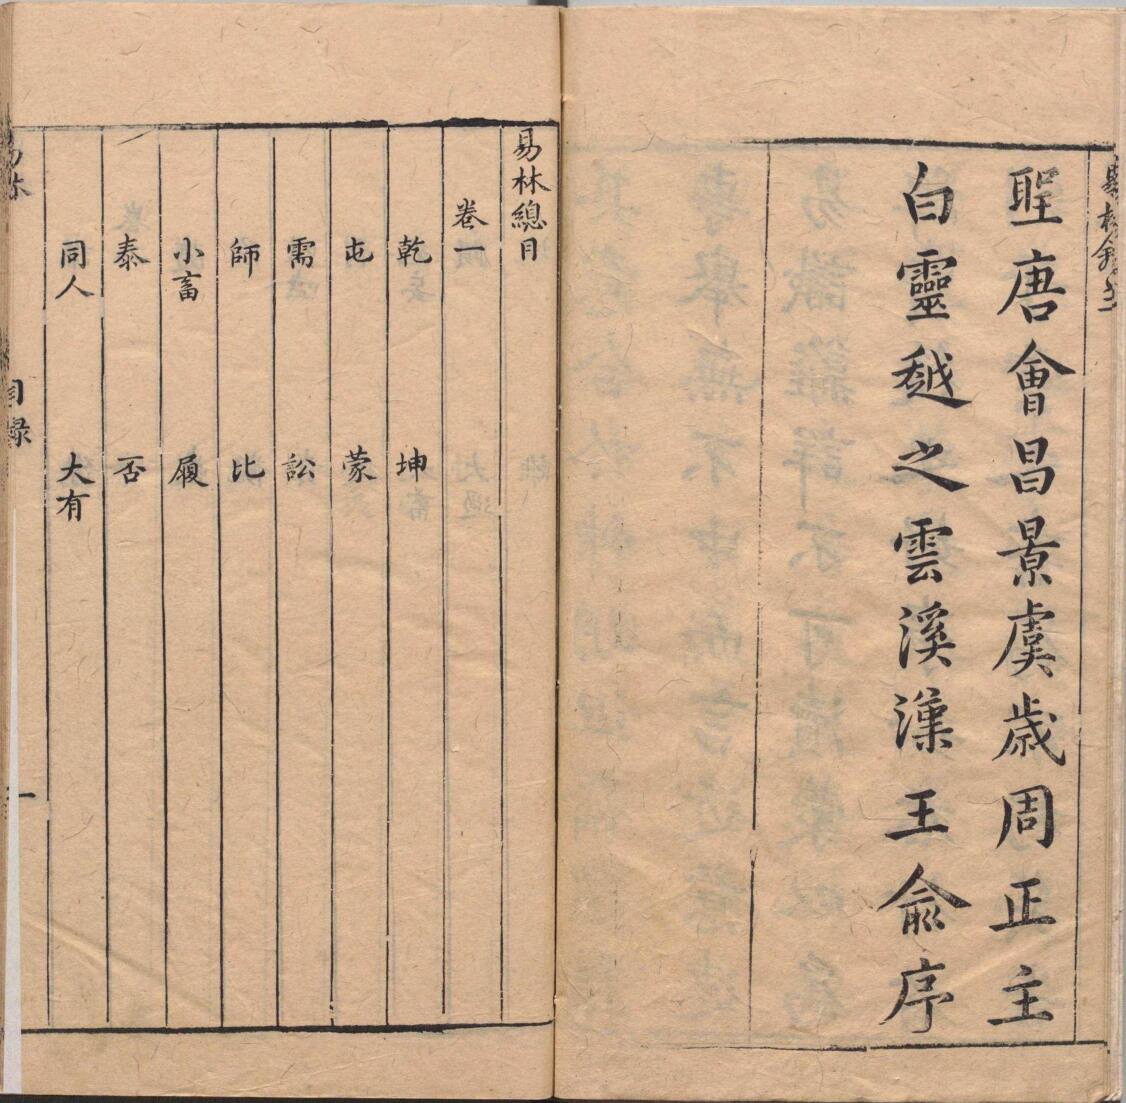 聖唐會昌景虞歲周正主
白靈越之雲溪漢王俞序
易林總目
卷一
乾 坤
屯 蒙
需 訟
師 比
小畜 履
泰 否
同人 大有
易林 目錄 一